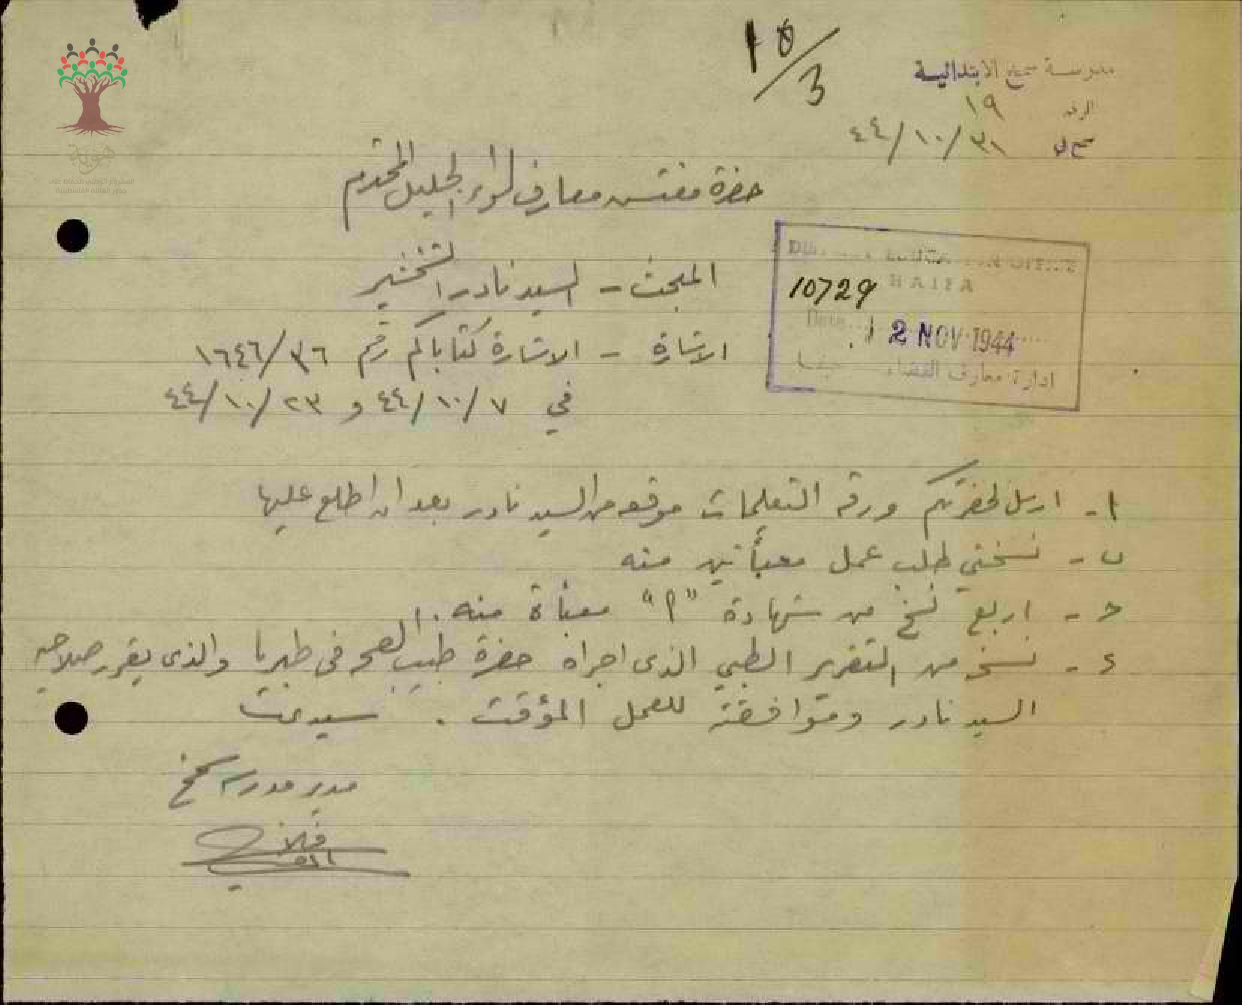 10/3
مدرسة سمخ الابتدائية
الرقم ١٩
سمخ في ٤٤/١٠/٣١
حضرة مفتش معارف لواء الجليل المحترم
DISTRICT EDUCATION OFFICE
HAIFA
10729
Date 2 NOV 1944
ادارة معارف القضاء حيفا
المبحث - السيد نادر
الاشارة - الاشارة كتاباكم رقم ١٦٤٦/٣٦
في ٤٤/١٠/٧ و ٤٤/١٠/٢٣
١- ارسل لحضرتكم ورقة التعليمات موقعه من السيد نادر بعد ان اطلع عليها
ب- نسختي طلب عمل معبأتين منه
ج- اربع نسخ من شهادة "م" معبأة منه.
د- نسخه من التقرير الطبي الذى اجراه حضرة طبيب الصحه فى طبريا والذى يقرر صلاحيه
السيد نادر وموافقته للعمل المؤقت. سيدي
مدير مدرسة سمخ